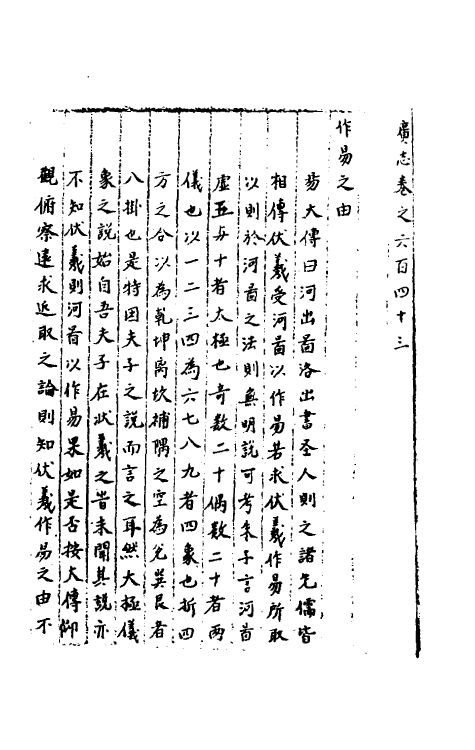 廣志卷之六百四十三
作易之由
易大傳曰河出啚洛出書圣人則之諸先儒皆
相傳伏羲受河啚以作易若求伏羲作易所取
以則於河啚之法則無明説可考朱子言河啚
虛五与十者太極也奇数二十偶数二十者两
儀也以一二三四為六七八九者四象也析四
方之合以為乾坤离坎補隅之空為兊巽艮者
八掛也是特因夫子之説而言之耳然大極儀
象之説始自吾夫子在伏羲之旹未聞其説亦
不知伏羲則河啚以作易果如是否按大傳仰
觀俯察遠求近取之論則知伏羲作易之由不